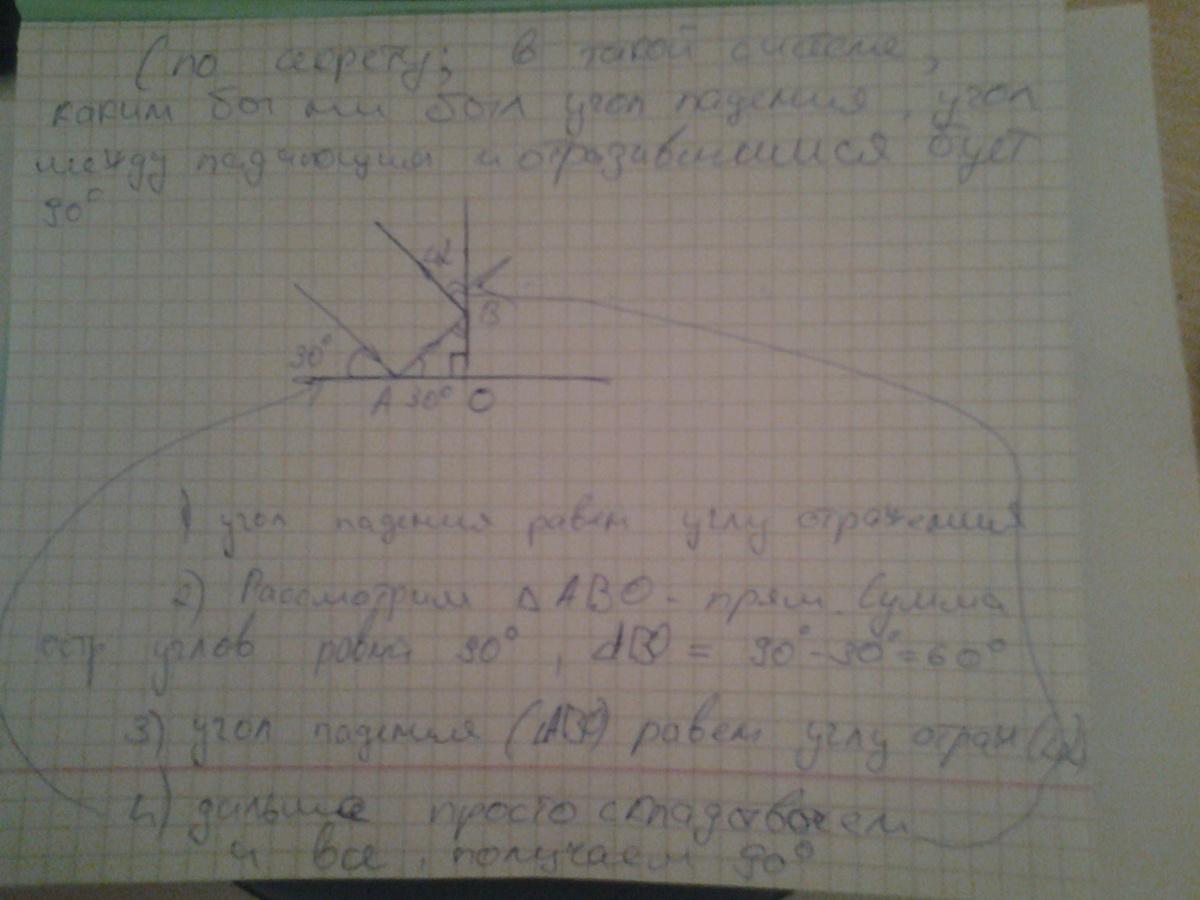 (по секрету; в такой системе,
каким бы ни был угол падения, угол
между падающим и отразившимися бует
90°
α
B
30°
A 30° O
1) угол падения равен углу отражения
2) Рассмотрим ΔABO - прям. Сумма
остр углов равна 90°, = 90° - 30° = 60°
3) угол падения равен углу отраж (∠α)
4) дальше просто складываем
и все, получаем 90°